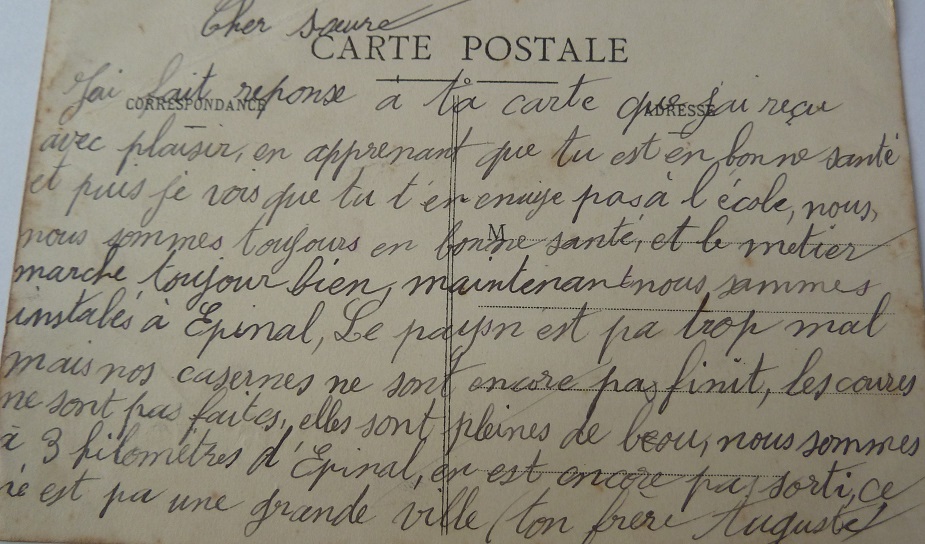 Cher sœure
CARTE POSTALE
J'ai fait reponse a ta carte que j'ai reçu
CORRESPONDANCE
ADRESSE
avec plaisir, en apprenant que tu est en bonne santé
et puis je vois que tu t'en enuye pas à l'école, nous,
M
nous sommes toujours en bonne santé, et le metier
marche toujour bien, maintenant nous sommes
instalés à Epinal, Le paysn est pa trop mal
mais nos casernes ne sont encore pas finit, les coures
ne sont pas faites, elles sont pleines de beou, nous sommes
à 3 kilomètres d'Epinal, en est encore pas sorti, ce
n'é est pa une grande ville (ton frère Auguste)